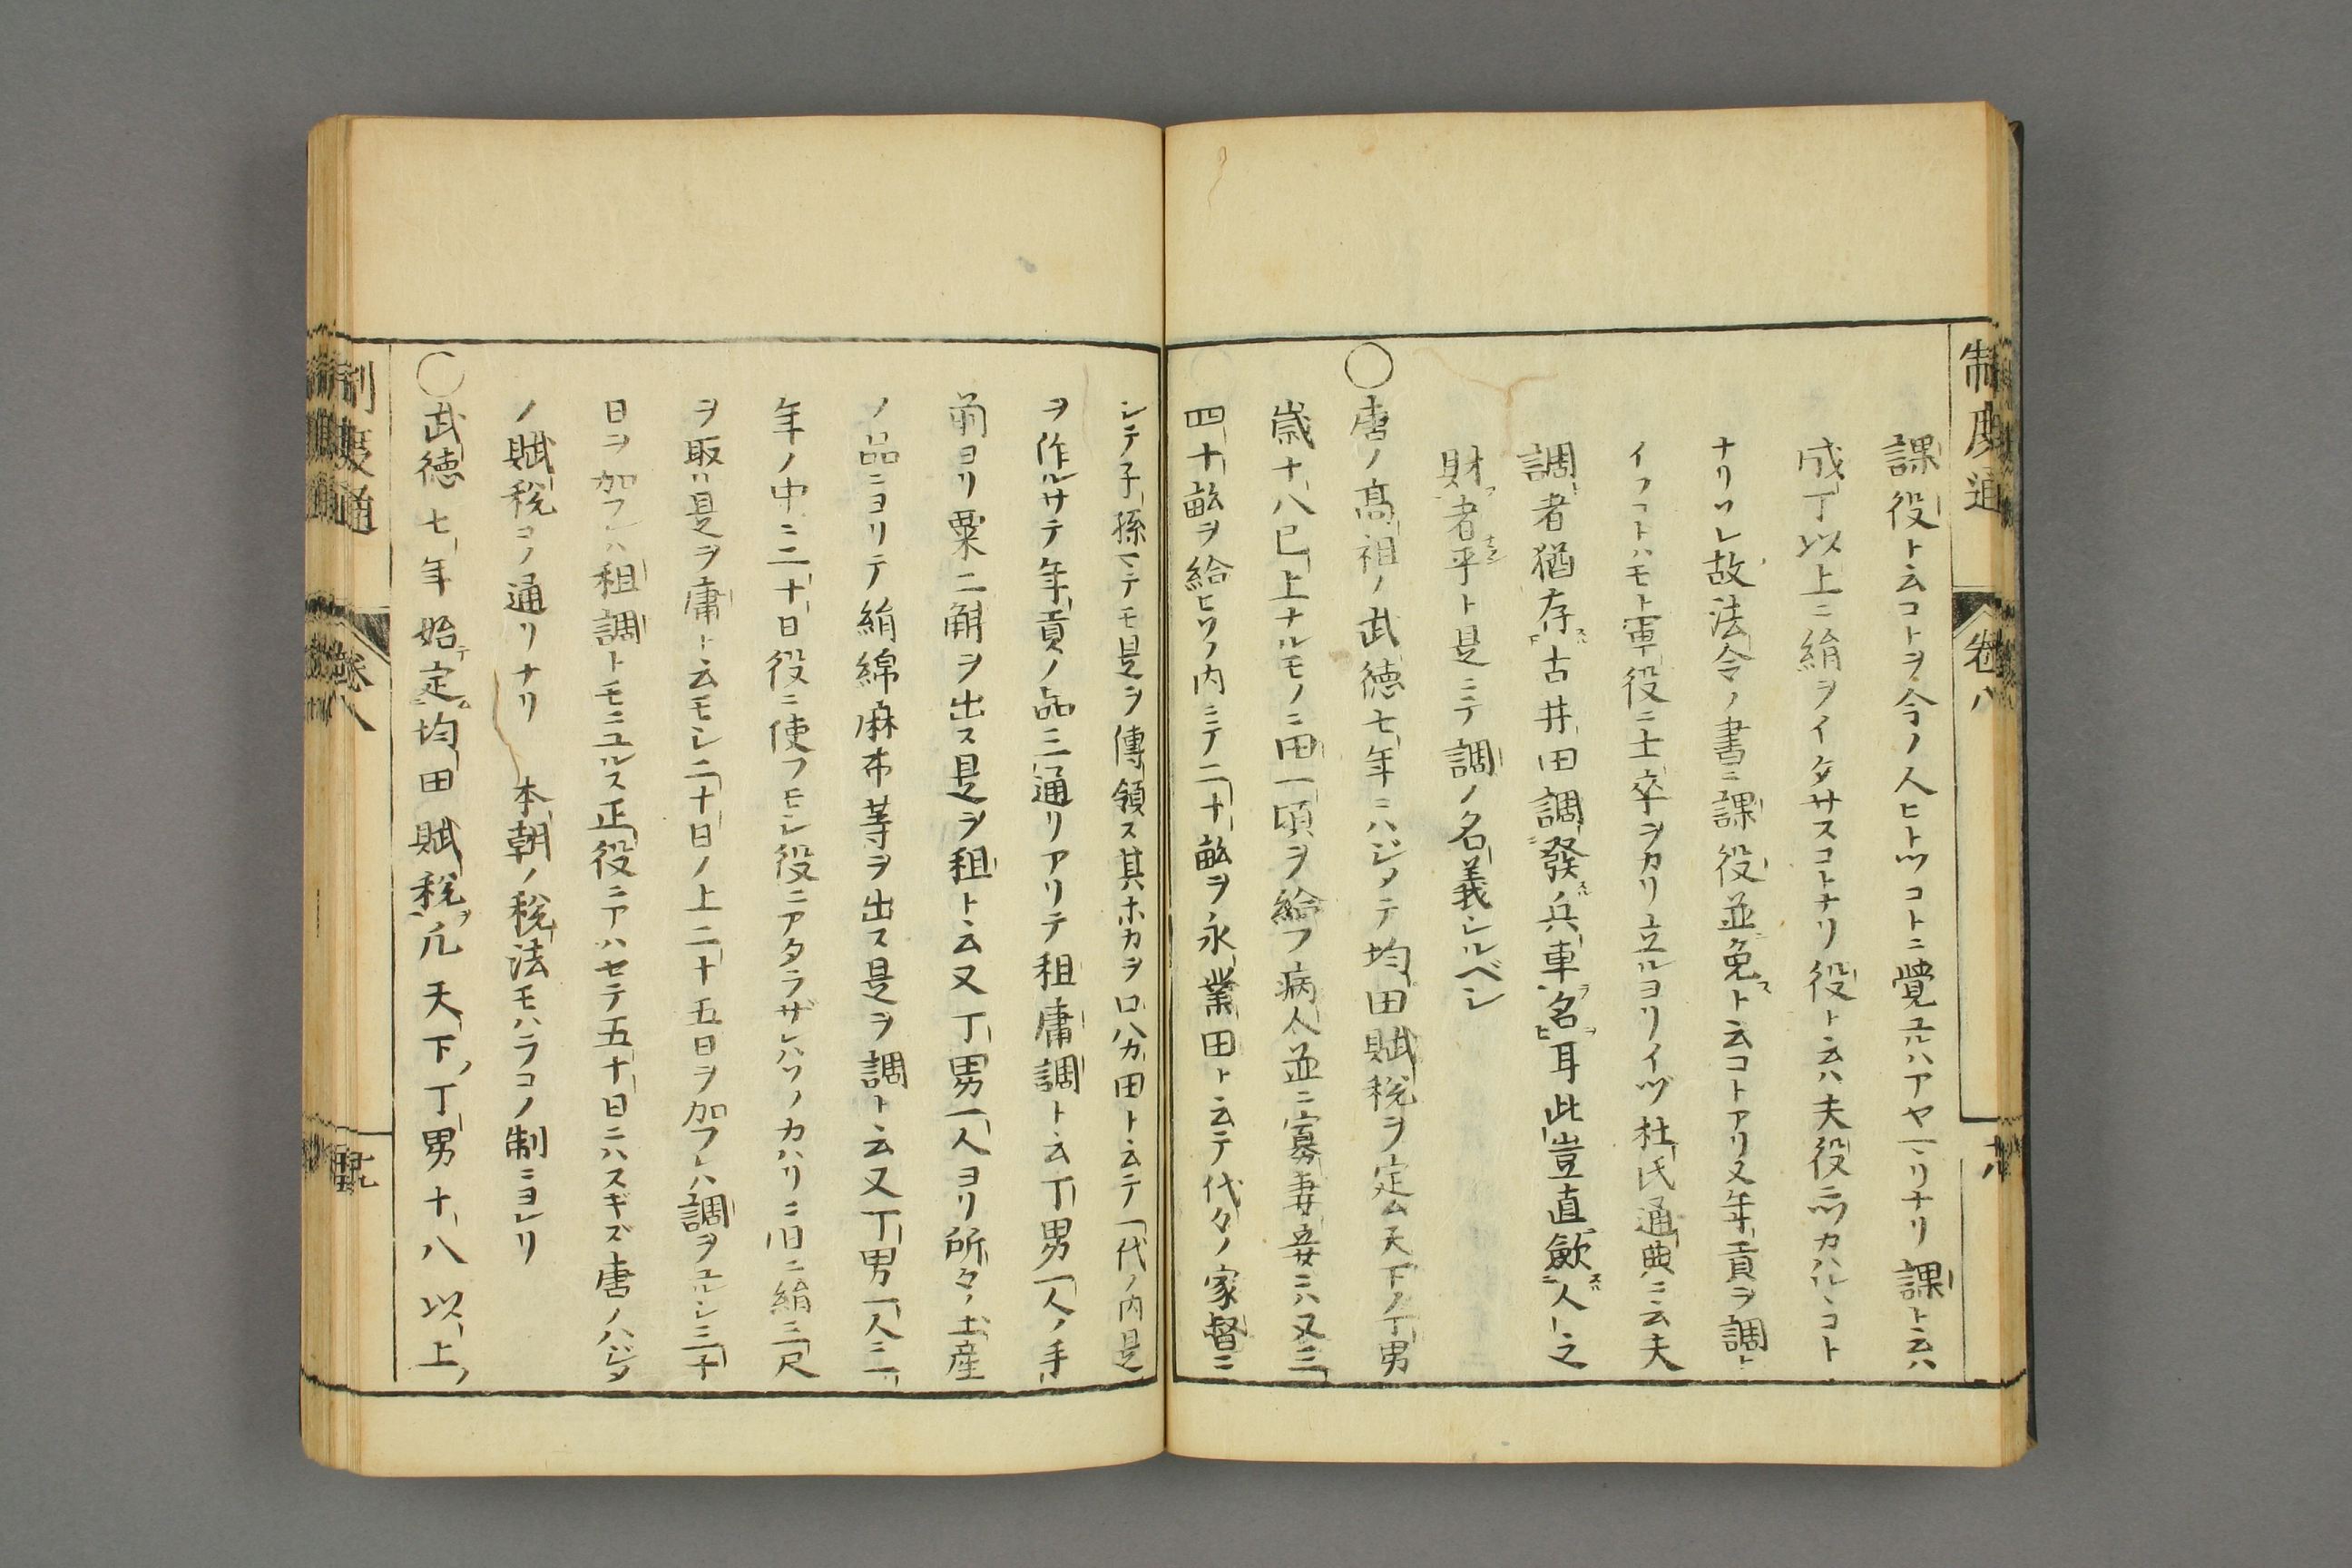 制度通 卷八 十八
課役ト云コトヲ今ノ人ヒトツコトニ覺ユルハアヤマリナリ課ト云ハ
成丁以上ニ絹ヲイタサスコトナリ役ト云ハ夫役ニツカハルヽコト
ナリソレ故法令ノ書ニ課役並免スト云コトアリ又年貢ヲ調ト
イフコトハモト軍役ニ士卒ヲカリ立ルヨリイヅ杜氏通典ニ云夫
調者猶存古井田調發兵車名耳此豈直斂人之
財者乎ト是ニテ調ノ名義シルベシ
○唐ノ高祖ノ武徳七年ニハジメテ均田賦税ヲ定ム天下ノ丁男
歳十八已上ナルモノニ田一頃ヲ給フ病人並ニ寡妻妾ニハ又三
四十畝ヲ給ヒソノ内ニテ二十畝ヲ永業田ト云テ代々ノ家督ニ
シテ子孫マテモ是ヲ傳領ス其ホカヲ口分田ト云テ一代ノ内是
ヲ作ルサテ年貢ノ品三通リアリテ租庸調ト云丁男一人ノ手
前ヨリ粟二斛ヲ出ス是ヲ租ト云又丁男一人ヨリ所々ノ土産
ノ品ニヨリテ絹綿麻布等ヲ出ス是ヲ調ト云又丁男一人ニ一
年ノ中ニ二十日役ニ使フモシ役ニアタラザレハソノカハリニ一日ニ絹三尺
ヲ取ハ是ヲ庸ト云モシ二十日ノ上二十五日ヲ加フレハ調ヲユルシ三十
日ヲ加フレハ租調トモニユルス正役ニアハセテ五十日ニハスギズ唐ノハジメ
ノ賦税コノ通リナリ 本朝ノ税法モハラコノ制ニヨレリ
○武徳七年始テ定ム均田賦税ヲ凡天下ノ丁男十八以上ノ
制度通 卷八